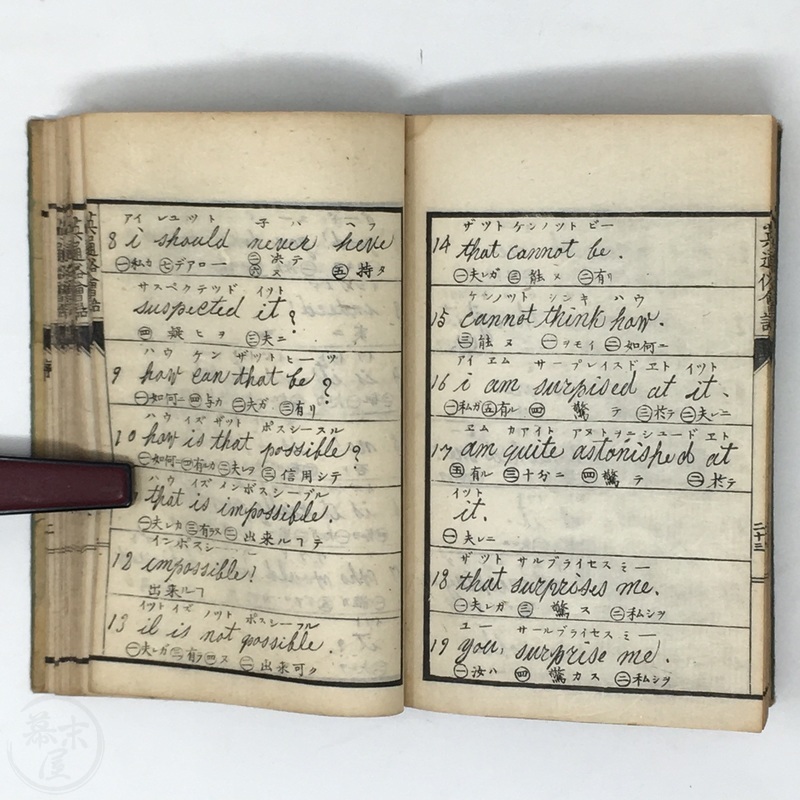 アイ レユット 子ハ ヘフ
8 i should never heve
㊀私カ ㊆デアロー ㊂決テ ㊅ス ㊄持タ
サスペクテツド イツト
suspected it?
㊃疑ヒヲ ㊂夫ニ
ハウ ケン ザツトヒーツ
9 how can that be?
㊀如何ニ ㊃与カ ㊁夫ガ ㊂有リ
ハウ イズ ザツト ポスシースル
10 how is that possible?
㊀如何ニ ㊃有ルカ ㊁夫レヲ ㊂信用シテ
ハウ イズ メンポスシーブル
that is impossible.
㊀夫レカ ㊂有ラス ㊁出来ルヿテ
インポスシー
12 impossible!
出来ルヿ
イツトイズ ノツト ポスシーフル
13 it is not possible.
㊀夫レガ ㊂有ラ ㊃ス ㊁出来可タ
ザツトケンノツトビー
14 that cannot be.
㊀夫レガ ㊂能ヌ ㊁有リ
ケンノツト シンキ ハウ
15 cannot think how.
㊂能ヌ ㊀ヲモイ ㊁如何ニ
アイ エム サープレイスド エト イツト
16 i am surpised at it.
㊀私ガ ㊄有ル ㊃驚テ ㊂於テ ㊁夫レニ
エム カアイト アストヲニシユード エト
17 am quite astonished at
㊄有ル ㊂十分ニ ㊃驚テ ㊁於テ
イツト
it.
㊀夫レニ
ザツト サルプライセスミー
18 that surprises me.
㊀夫レガ ㊂驚ス ㊁私シヲ
ユー サールプライセスミー
19 you, surprise me.
㊀汝ハ ㊃驚カス ㊁私シヲ
英通俗會話
二十三
幕末屋